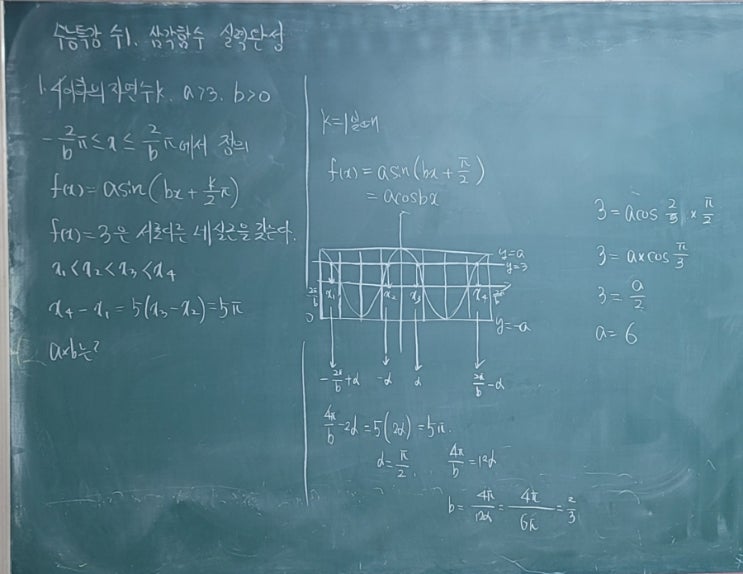 수능특강 수1. 삼각함수 실력완성
1. 4이하의 자연수 k, a>3, b>0
-2/b π ≤ x ≤ 2/b π 에서 정의
f(x) = asin(bx + k/2 π)
f(x)=3은 서로다른 네실근을 갖는다.
x₁<x₂<x₃<x₄
x₄-x₁=5(x₃-x₂)=5π
a×b는?
k=1일때
f(x)=asin(bx+π/2)
=acosbx
y=a
y=3
x₁ x₂ x₃ x₄
y=-a
-2π/b+α -α α 2π/b-α
4π/b-2α=5(2α)=5π.
α=π/2. 4π/b=12α
b=4π/12α=4π/6π=2/3
3=acos 2/3 × π/2
3=a×cos π/3
3=a/2
a=6